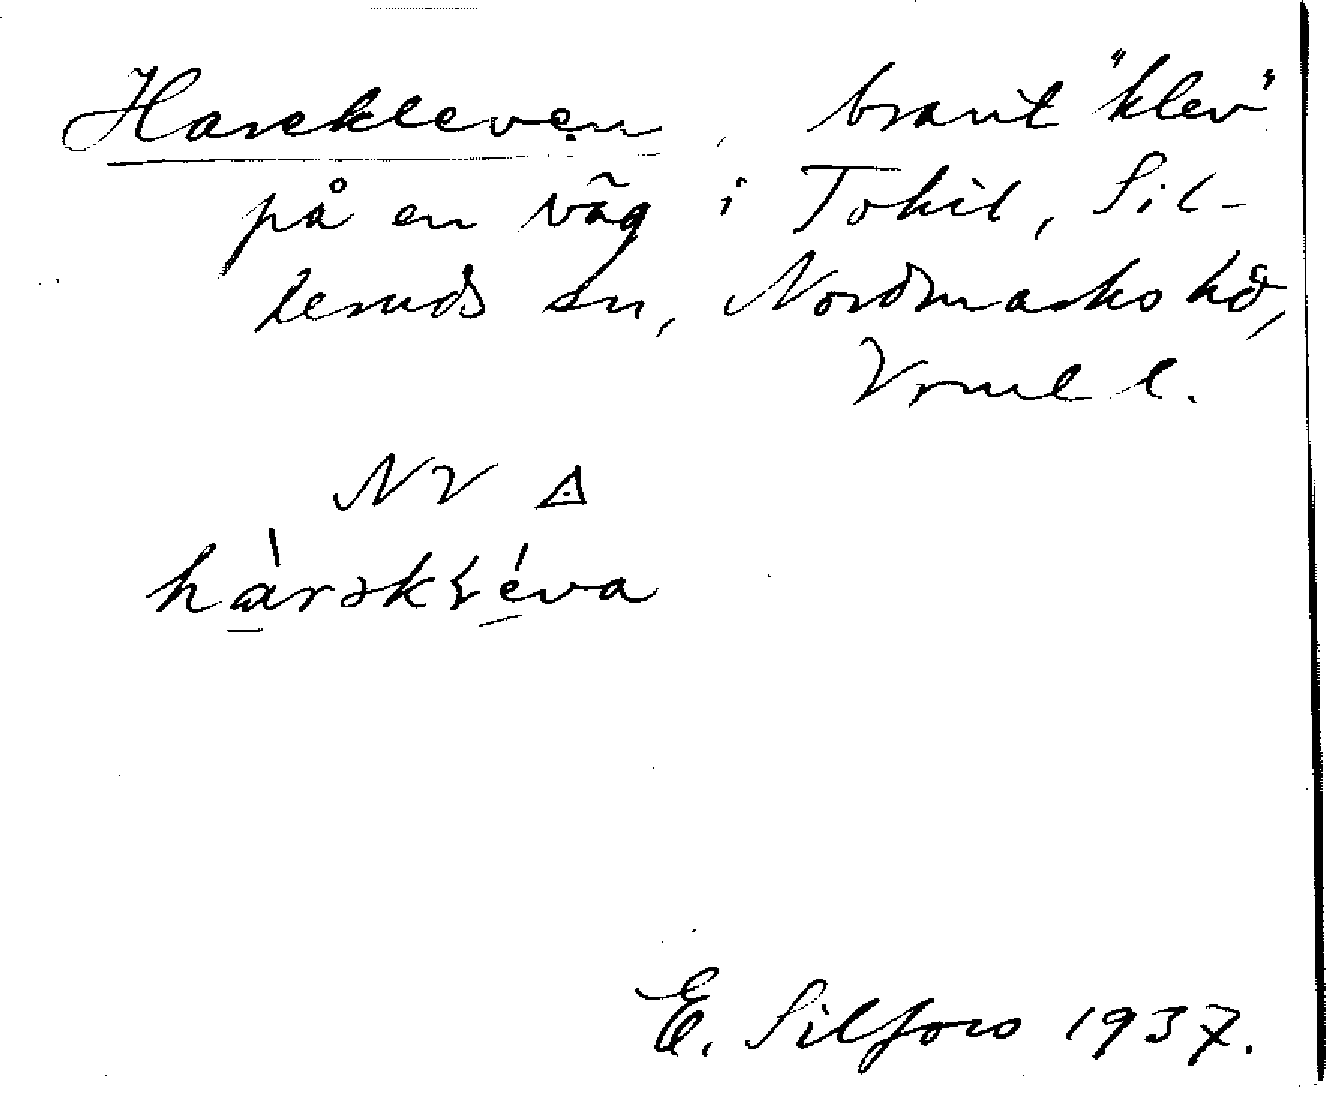 Harekleven, brant "klev"
på en väg i Tokil, Sil-
leruds sn, Nordmarks hd,
Vrml l.
NV
E. Silfors 1937.